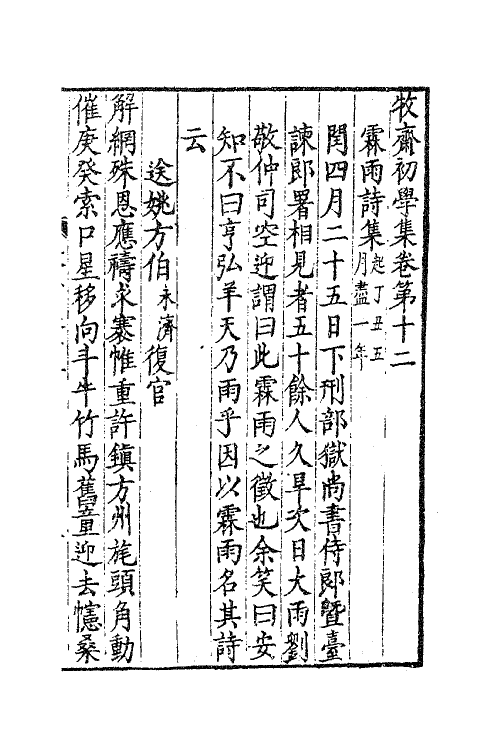 牧齋初學集卷第十二
霖雨詩集起丁丑五月盡一年
閏四月二十五日下刑部獄尚書侍郎曁臺
諫郎署相見者五十餘人久旱次日大雨劉
敬仲司空迎謂曰此霖雨之徵也余笑曰安
知不曰亨弘羊天乃雨乎因以霖雨名其詩
云
送姚方伯永濟復官
解網殊恩應禱求褰帷重許鎭方州旄頭角動
催庚癸索口星移向斗牛竹馬舊童迎去幰桑